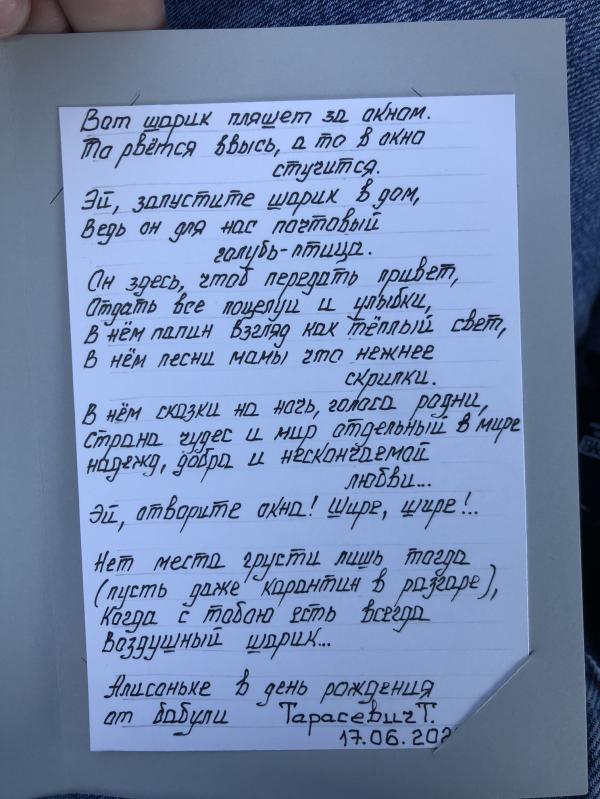 Вот шарик пляшет за окном.
То рвётся ввысь, а то в окно
стучится.
Эй, запустите шарик в дом,
Ведь он для нас почтовый
голубь-птица.
Он здесь, чтоб передать привет,
Отдать все поцелуи и улыбки,
В нём папин взгляд как тёплый свет,
В нём песни мамы что нежнее
скрипки.
В нём сказки на ночь, голоса родни,
Страна чудес и мир отдельный в мире
надежд, добра и нескончаемой
любви...
Эй, отворите окна! Шире, шире!..
Нет места грусти лишь тогда
(пусть даже карантин в разгаре),
Когда с тобою есть всегда
Воздушный шарик...
Алисоньке в день рождения
от бабули Тарасевич Т.
17.06.202